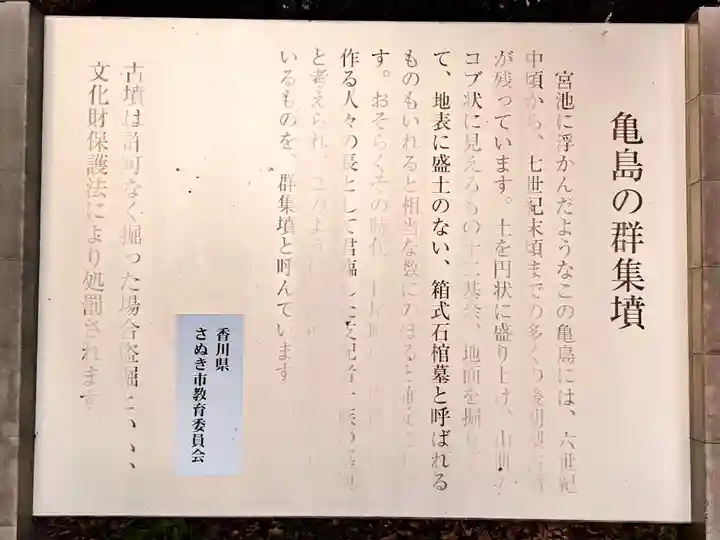 亀島の群集墳
宮池に浮かんだようなこの亀島には、六世紀
中頃から、七世紀末頃までの多くの後期
が残っています。土を円状に盛り上げ、
コブ状に見えるもの十二基余、地面を掘り
て、地表に盛土のない、箱式石棺墓と呼ばれる
ものもいれると相当な数にのぼると
す。おそらくその時代、
作る人々の長として君臨した支配者一族の
と考えられ、このように
いるものを、群集墳と呼んでいます
古墳は許可なく掘った場合盗掘といい、
文化財保護法により処罰されます
香川県
さぬき市教育委員会